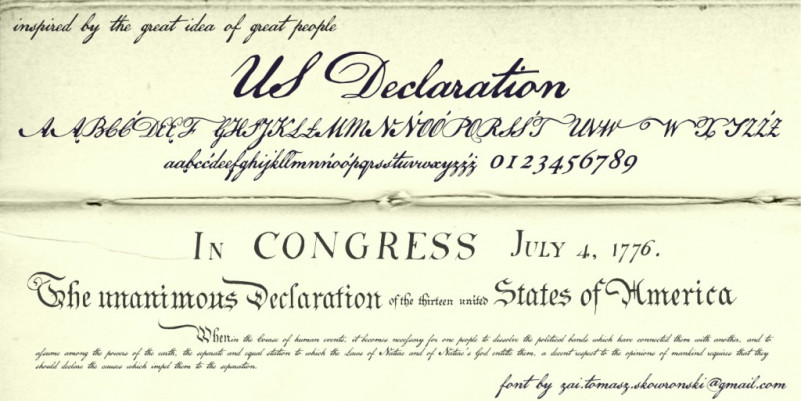 inspired by the great idea of great people
US Declaration
AĄBCĆDEĘF GHIJKLŁMM NŃOÓPQRSŚT UVW W XYZŹŻ
aąbcćdeęfghijklłmnńoópqrsśtuvwxyzźż 0123456789
IN CONGRESS JULY 4, 1776.
The unanimous Declaration of the thirteen united States of America
When in the Course of human events, it becomes neceſsary for one people to dissolve the political bands which have connected them with another, and to
aſsume among the powers of the earth, the separate and equal station to which the Laws of Nature and of Nature's God entitle them, a decent respect to the opinions of mankind requires that they
should declare the causes which impel them to the separation.
font by zai.tomasz.skowronski@gmail.com